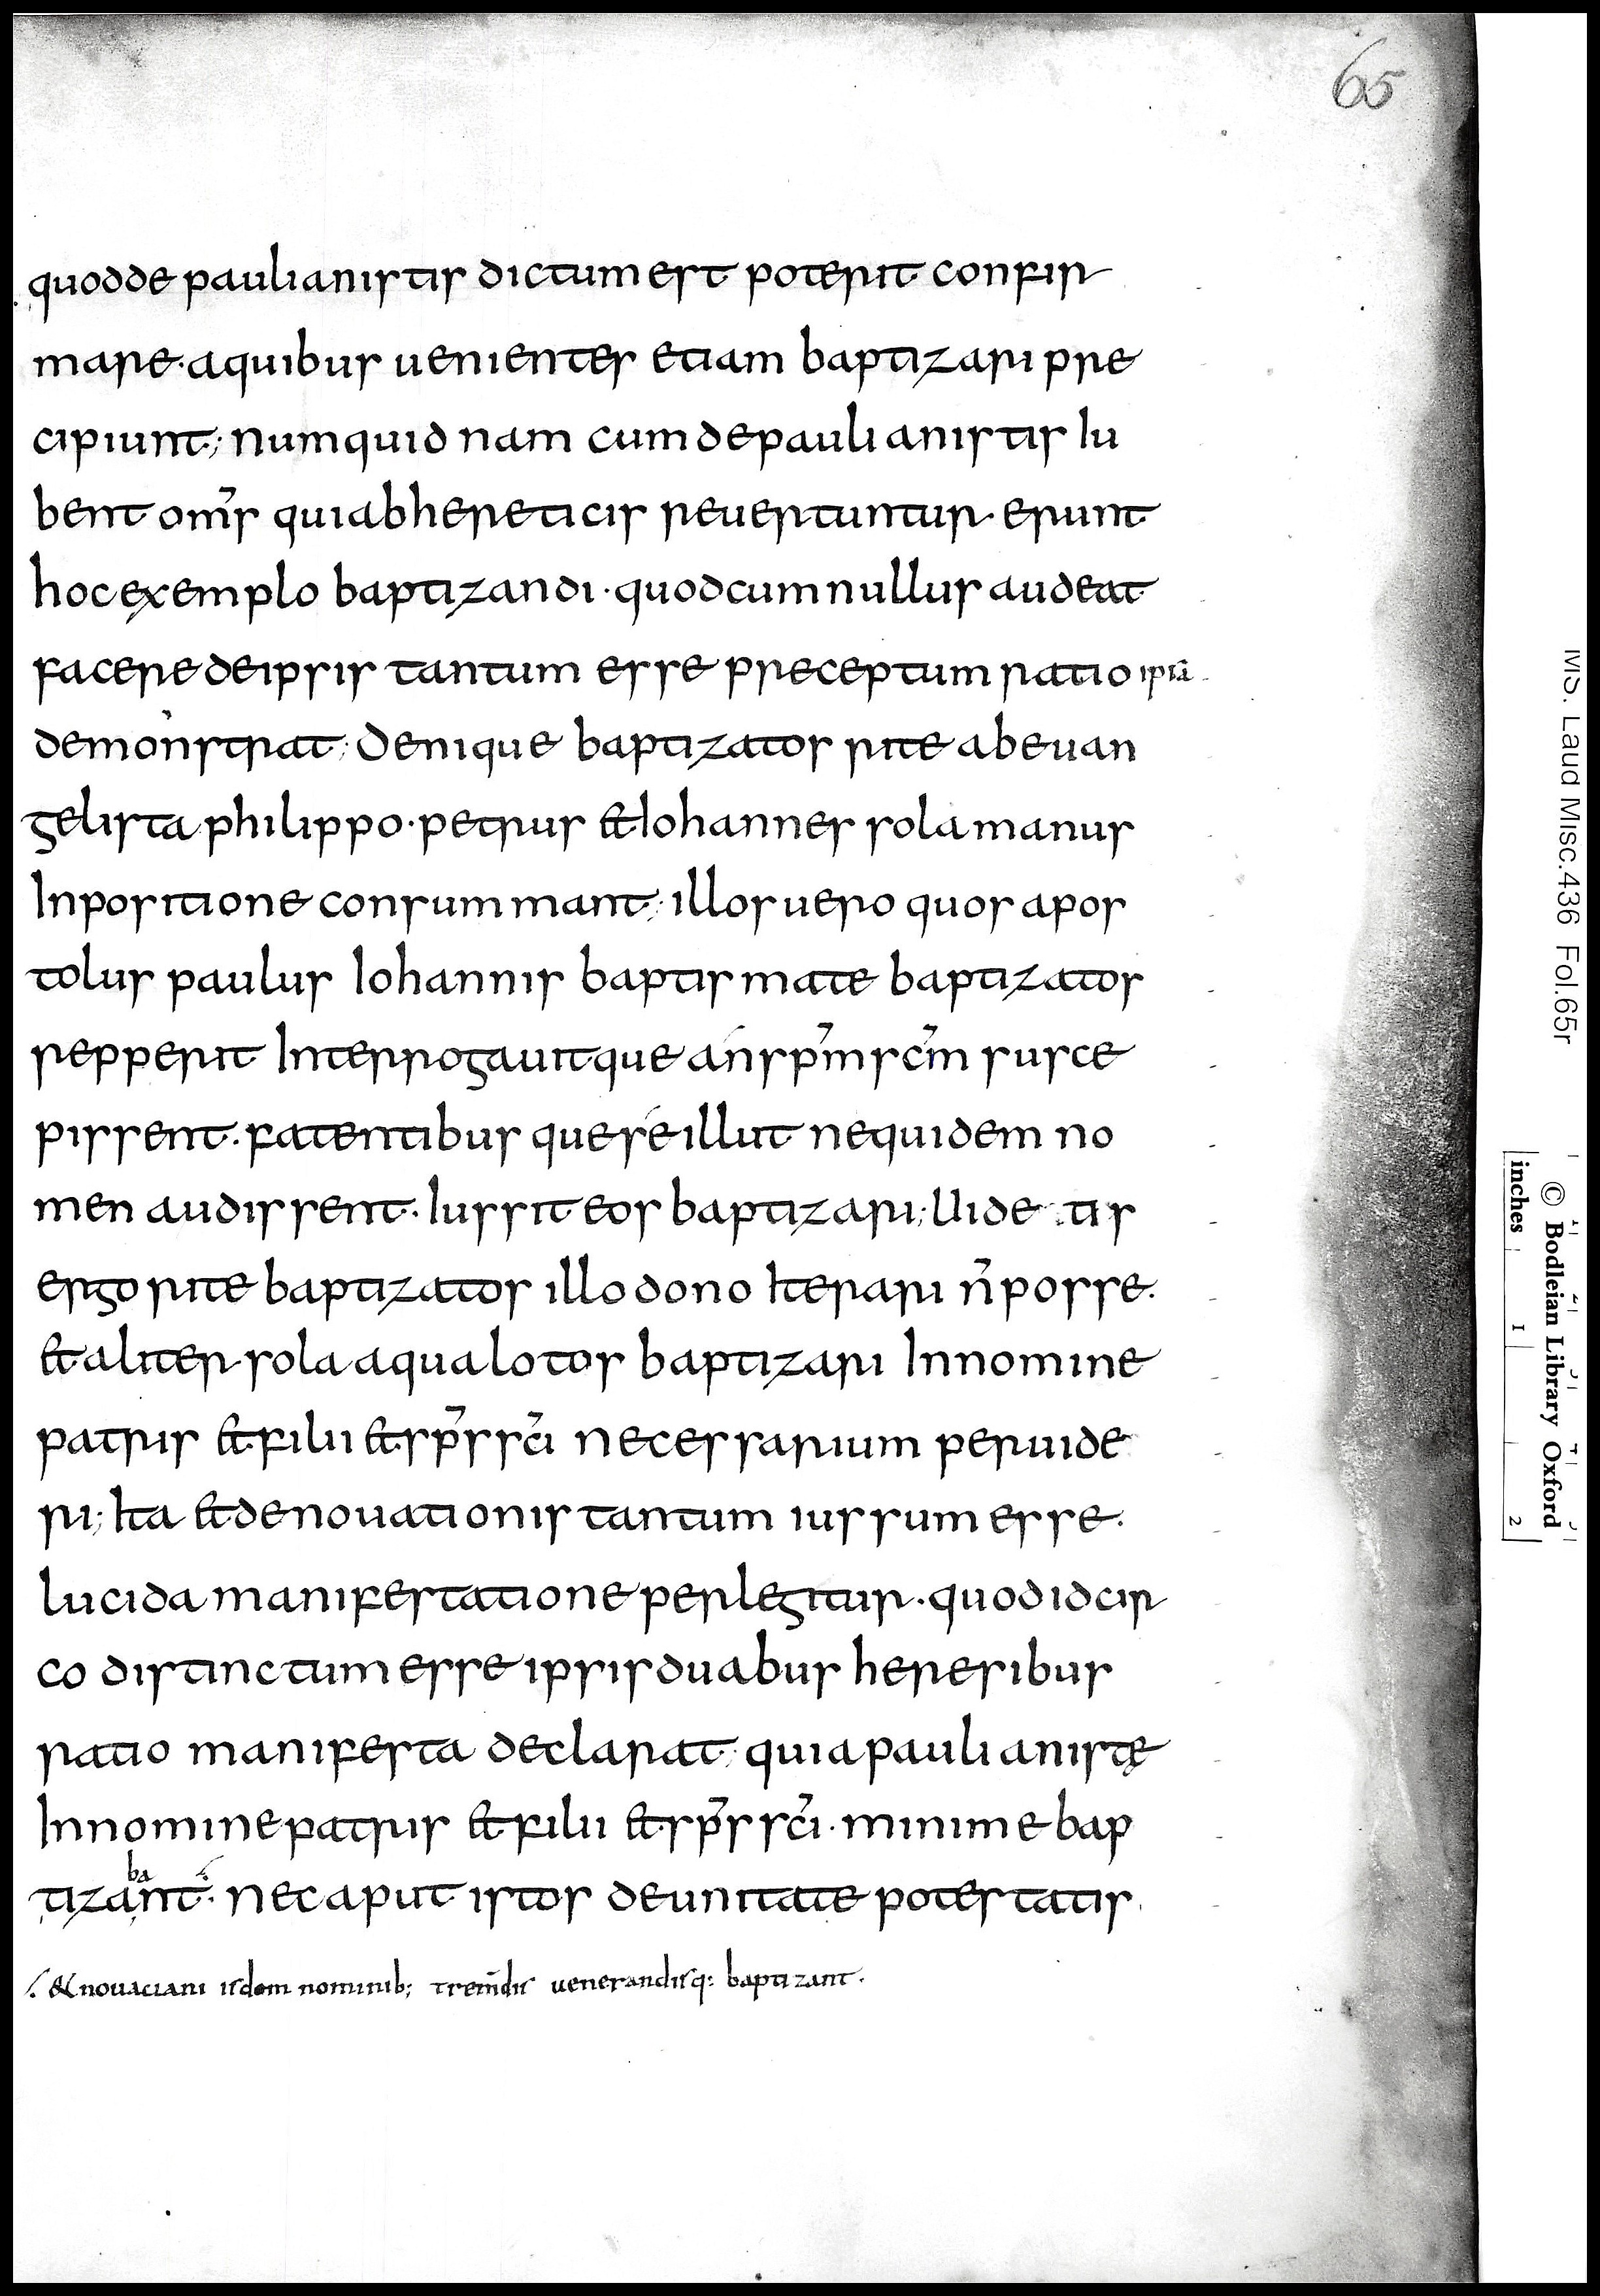 65
quod de paulianistis dictum est poterit confir
mare· a quibus uenientes etiam baptizari pre
cipiunt; numquid nam cum de paulianistis Iu
bent om̄s qui ab hereticis reuertuntur· erunt
hoc exemplo baptizandi· quod cum nullus audeat
facere de ipsis tantum esse preceptum ratio ipsa
demonstrat; Denique baptizatos rite ab euan
gelista philippo· petrus & Iohannes sola manus
Inpositione consummant; illos uero quos apos
tolus paulus Iohannis baptismate baptizatos
repperit Interrogauitque an sp̄m sc̄m susce
pissent· fatentibus que se illut ne quidem no
men audissent· Iussit eos baptizari; Uide tis
ergo rite baptizatos illo dono Iterari n̄ posse·
& aliter sola aqua lotos baptizari In nomine
patris & filii & sp̄s sc̄i necessarium peruide
ri; Ita & de nouationis tantum iussum esse·
lucida manifestatione perlegitur· quod idcir
co distinctum esse ipsis duabus heresibus
ratio manifesta declarat; quia paulianistę
In nomine patris & filii & sp̄s sc̄i· minime bap
ba
tizant· nec aput istos de unitate potestatis
/. & nouaciani isdem nominib; trem̄dis uenerandisq: baptizant·
MS. Laud Misc.436 Fol.65r
© Bodleian Library Oxford
inches 1 2